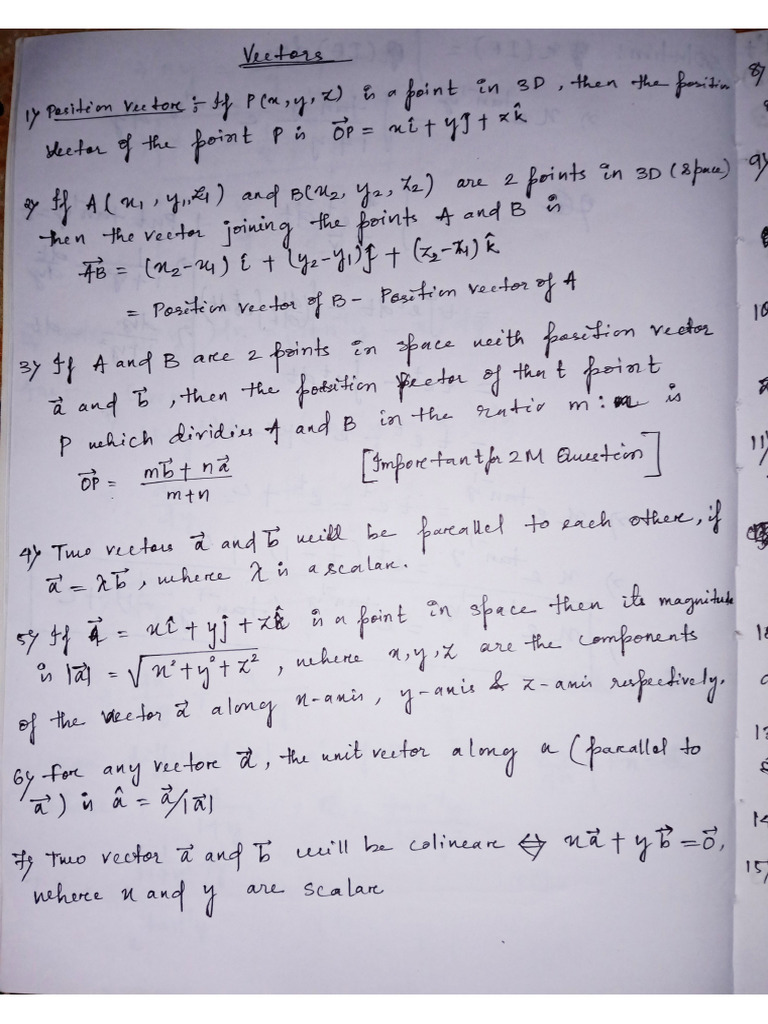 Vectors
1) Position Vector :- If P(x, y, z) is a point in 3D, then the position
vector of the point P is OP⃗ = xî + yĵ + zk̂
2) If A(x₁, y₁, z₁) and B(x₂, y₂, z₂) are 2 points in 3D (space)
then the vector joining the points A and B is
AB⃗ = (x₂-x₁) î + (y₂-y₁)ĵ + (z₂-z₁) k̂
= Position vector of B - Position vector of A
3) If A and B are 2 points in space with position vector
a⃗ and b⃗, then the position vector of that point
P which dividies A and B in the ratio m:n is
OP⃗ = (mb⃗ + na⃗)/(m+n) [Important for 2M Question]
4) Two vectors a⃗ and b⃗ will be parallel to each other, if
a⃗ = λb⃗, where λ is a scalar.
5) If a⃗ = xî + yĵ + zk̂ is a point in space then its magnitude
is |a⃗| = √(x² + y² + z²), where x, y, z are the components
of the vector a⃗ along x-axis, y-axis & z-axis respectively.
6) For any vector a⃗, the unit vector along a (parallel to
a⃗) is â = a⃗/|a⃗|
7) Two vector a⃗ and b⃗ will be colinear ⇔ xa⃗ + yb⃗ = 0⃗,
where x and y are scalar
8)
9)
10
11)
1
13
14
15)